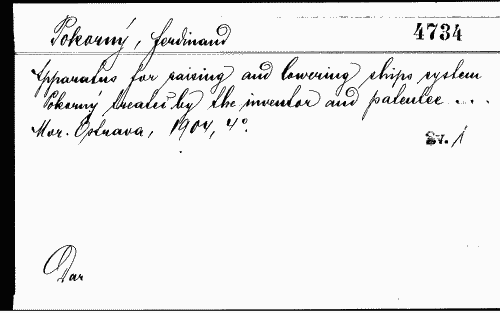 Pokorný, Ferdinand 4734
Apparatus for raising and lowering ships system
Pokorný treated by the inventor and patentee ....
Mor. Ostrava, 1904, 4°.
Sv. 1
Dar